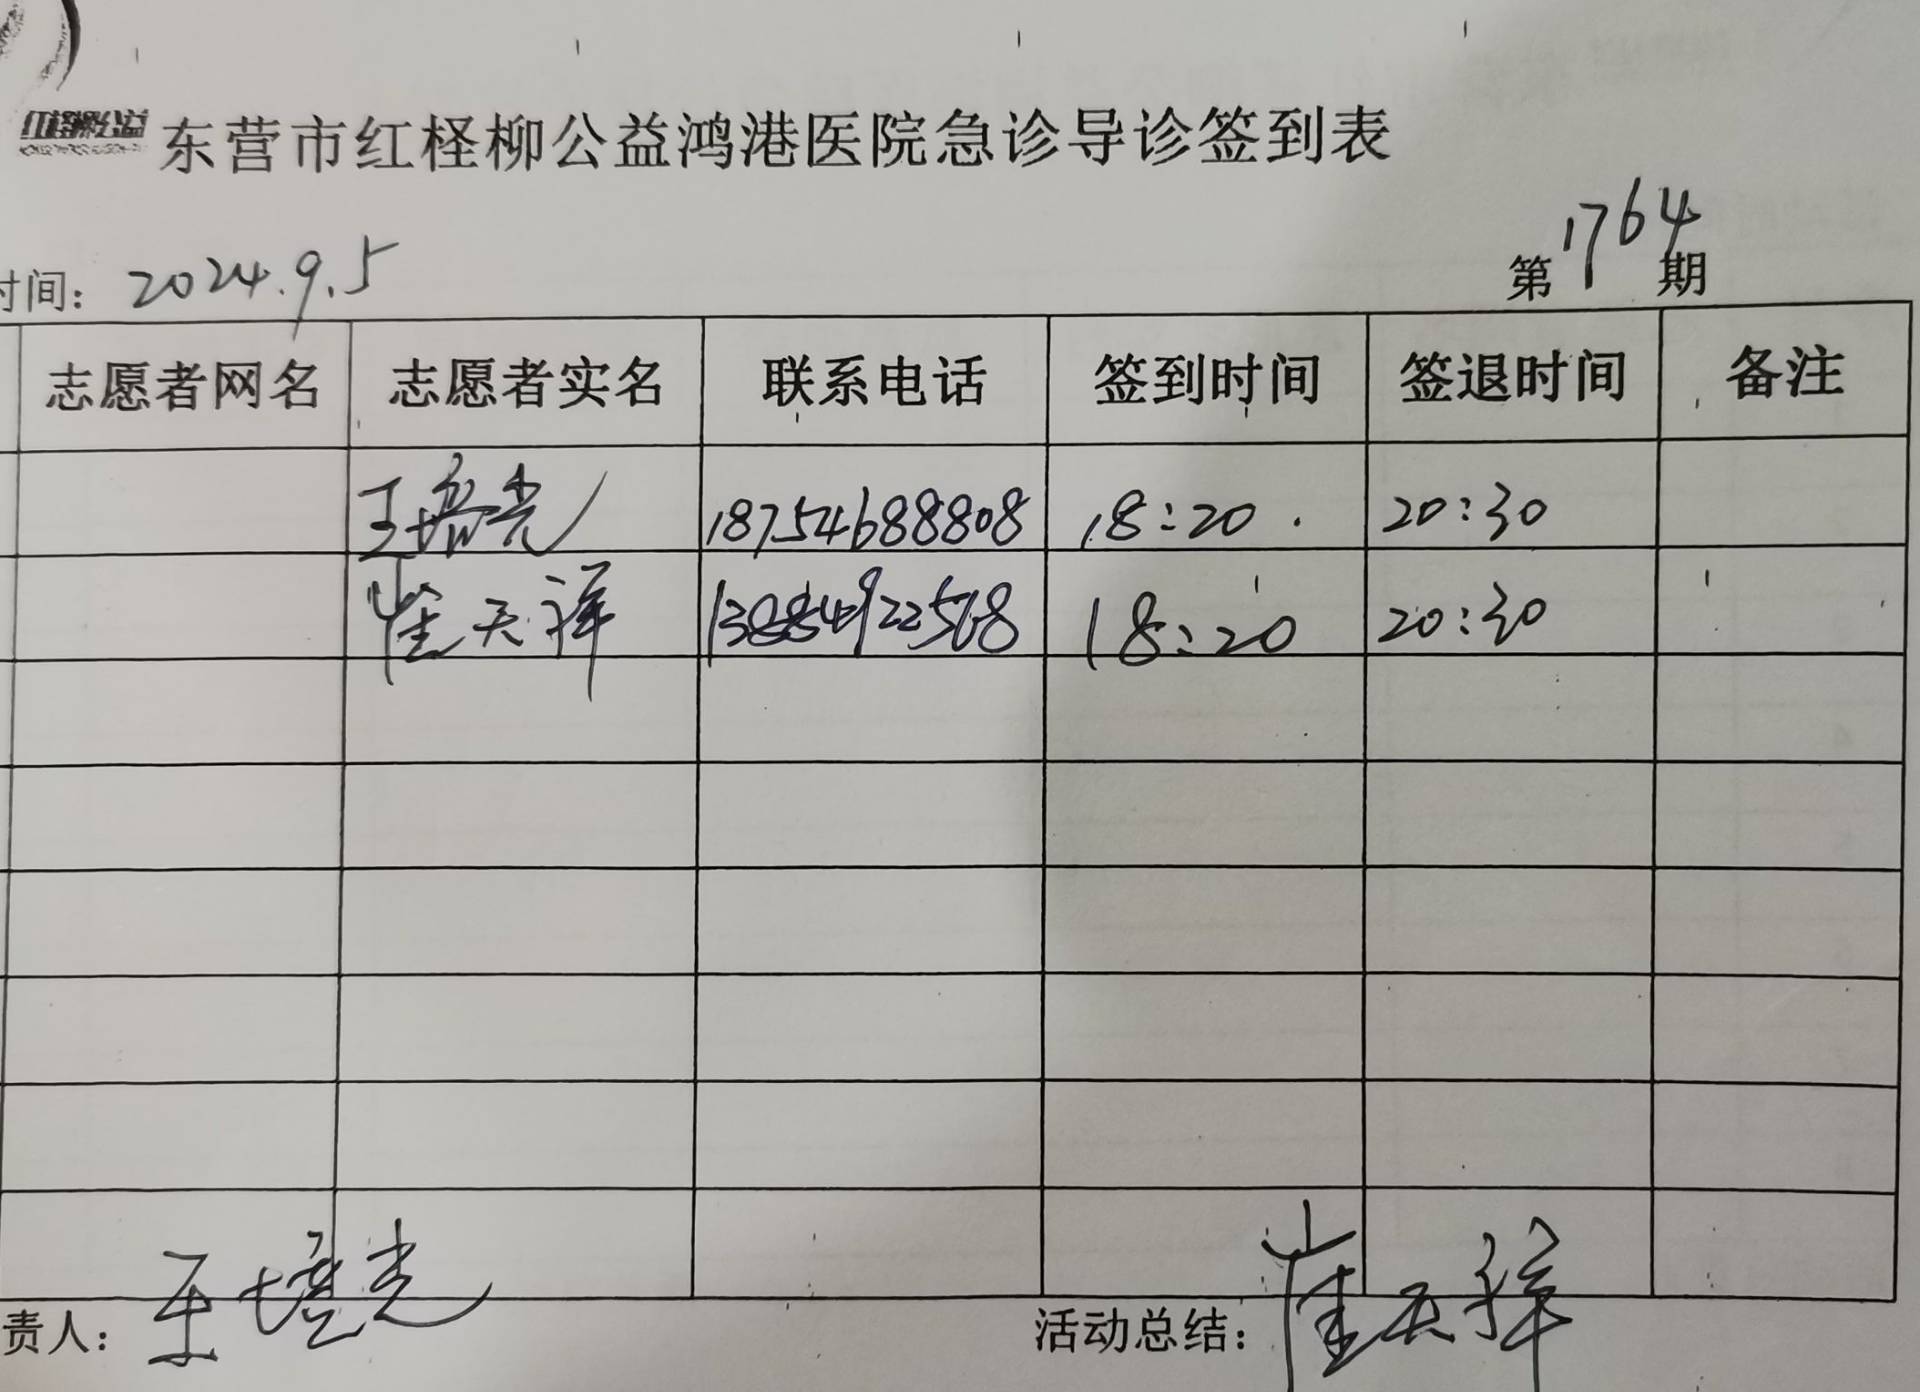 红柽柳公益
东营市红柽柳公益鸿港医院急诊导诊签到表
时间: 2024.9.5 第1764期
志愿者网名 志愿者实名 联系电话 签到时间 签退时间 备注
王培光 18754688808 18:20 20:30
崔天祥 13884922568 18:20 20:30
责人: 王培光 活动总结: 崔天祥